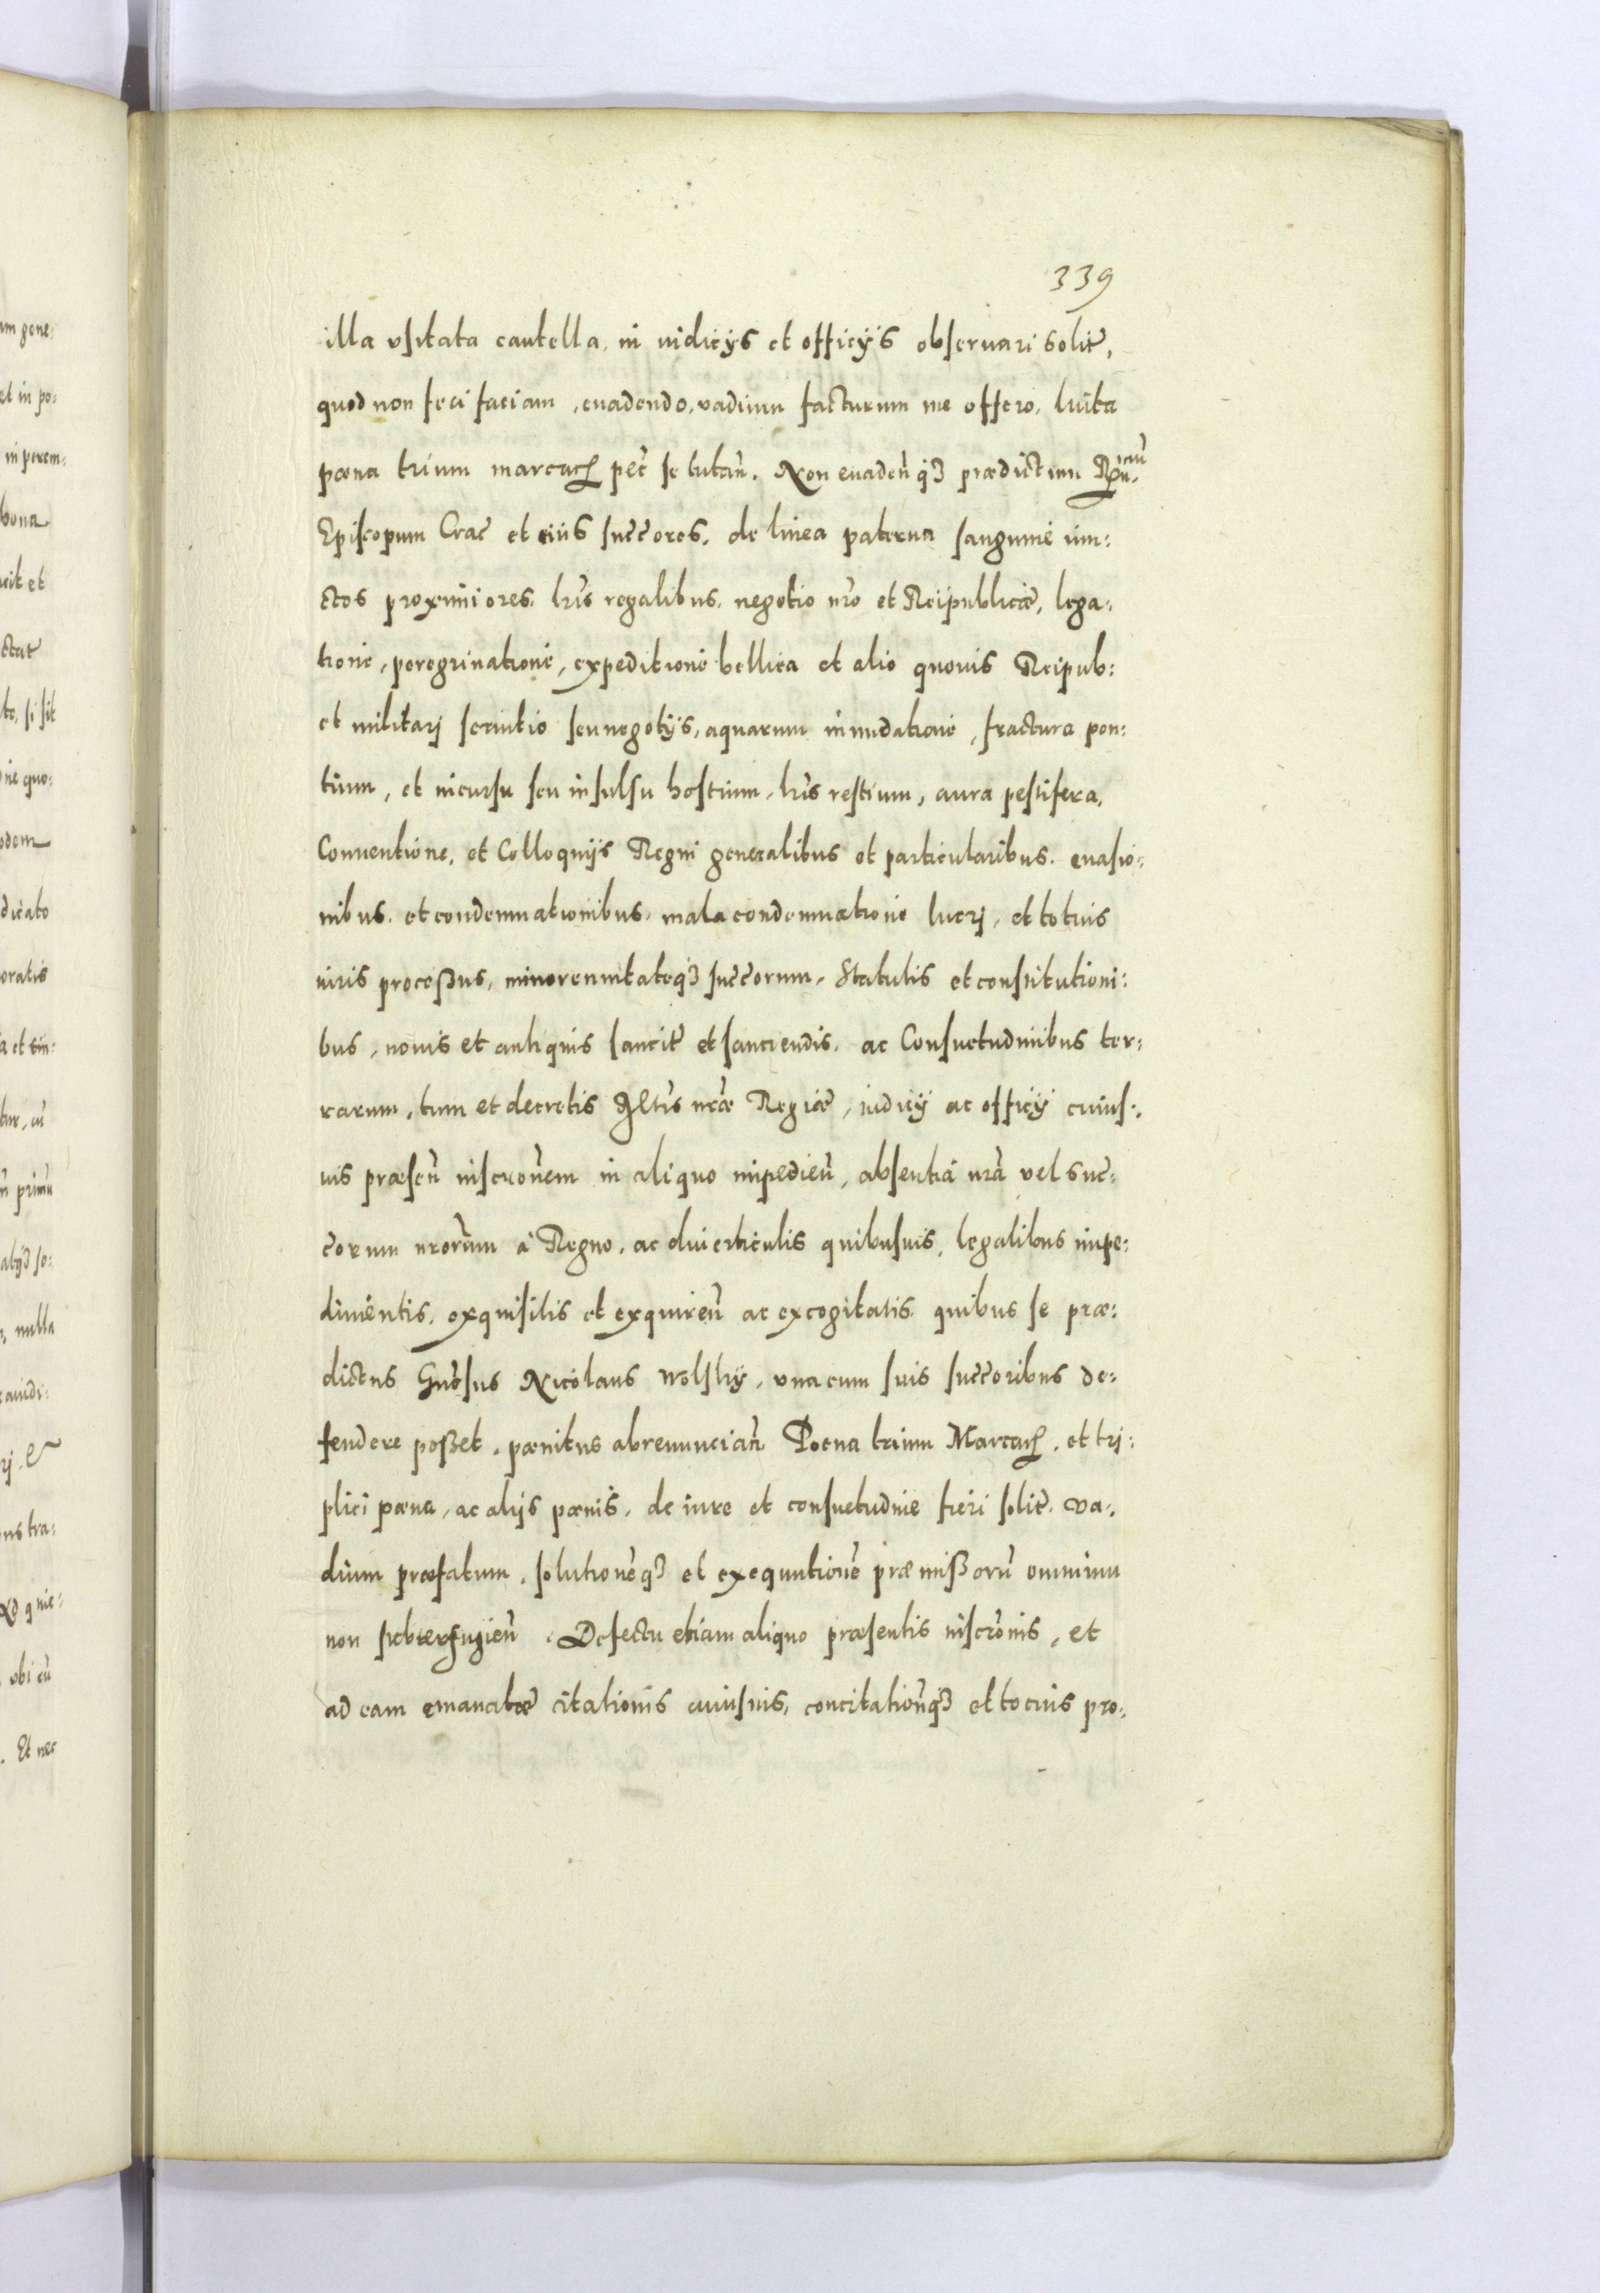 339
illa vsitata cautella, in iudicÿs et officÿs obseruari solit̃,
quod non feci faciam, euadendo, vadium facturum me offero, luita
pæna trium marcaꝝ pec̃ se lutañ. Non euadeñ qȝ prædictum Rñ.
Episcopum Crac̃ et eiús suc̃c̃ores. de linea paterna sanguine iun:
ctos proximiores. lr̃is regalibus. negotio nr̃o et Reipublicæ, lega:
tione, peregrinatione, expeditione bellica et alio quouis Reipub:
et militarj seruitio seu negotÿs, aquarum inundatione, fractura pon:
tium, et incursu seu insulsu hostium, lr̃is restium, aura pestifera,
Conuentione, et Colloquijs Regni generalibus et particularibus. euasio:
nibus. et condemnationibus, mala condemnatione lucrj, et totius
iuris proceßus, minorennitateqȝ suc̃c̃orum, Statutis et constitutioni:
bus, nouis et antiquis sancit̃ et sanciendis. ac Consuetudinibus ter:
rarum, tum et decretis Mt̃is nr̃æ Regiæ, iudicÿ ac officÿ cuius:
uis præseñ inscriõnem in aliquo impedieñ, absentia nr̃a vel suc̃:
c̃orum nr̃orum à Regno, ac diuerticulis quibusuis, legalibus impe:
dimentis, exquisitis et exquireñ ac excogitatis quibus se præ:
dictus Gñosus Nicolaus Wolsky, vna cum suis suc̃c̃oribus de:
fendere poßet, pænitus abrenunciañ Poena trium Marcaꝝ, et tri:
plici pæna, ac alijs pænis, de iure et consuetudine fieri solit̃. va:
dium præfatum, solutionẽqȝ et exequutionẽ præmißorũ omnium
non subterfugieñ. Defectu etiam aliquo præsentis inscr̃onis, et
ad eam emanatæ citationis cuiusuis, concitationũqȝ et tocius pro: